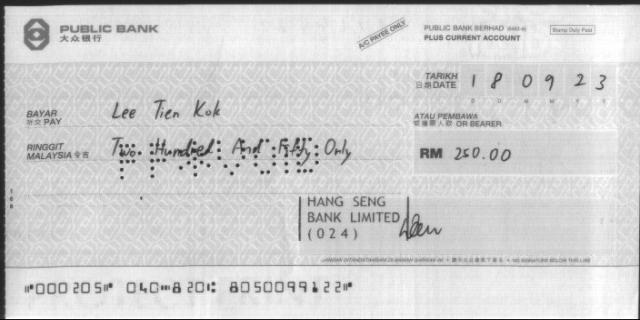 PUBLIC BANK
大众银行
A/C PAYEE ONLY
PUBLIC BANK BERHAD
PLUS CURRENT ACCOUNT
Stamp Duty Paid
TARIKH
日期 DATE
1 8 0 9 2 3
D D M M Y Y
BAYAR
PAY
Lee Tien Kok
ATAU PEMBAWA
OR BEARER
RINGGIT
MALAYSIA
Two Hundred And Fifty Only
RM 250.00
HANG SENG
BANK LIMITED
(024)
NO SIGNATURE BELOW THIS LINE
⑈000205⑈ 040⑉820⑆ 8050099122⑈